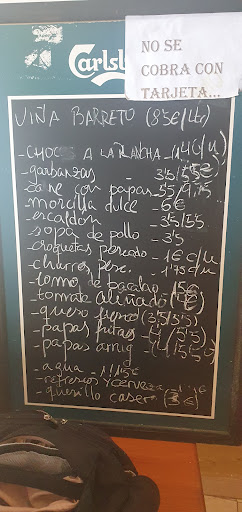 Carlsb
NO SE
COBRA CON
TARJETA...
VIÑA BARRETO (85€/L)
- CHOCOS A LA PLANCHA - (14€/u)
- garbanzas - 3'5/5'5€
carne con papas - 5'5/
- morcilla dulce - 6€
- escaldón - 3'5/5'5
- sopa de pollo - 3'5
- croquetas pescado - 1€ c/u
- churros pesc. - 1'75 c/u
- lomo de bacalao (15€)
- tomate aliñado
- queso
- papas fritas - (4/5'5)
- papas arrug -
- agua - 1/1'5€
- refrescos y cerveza -
- quesillo casero (3€)